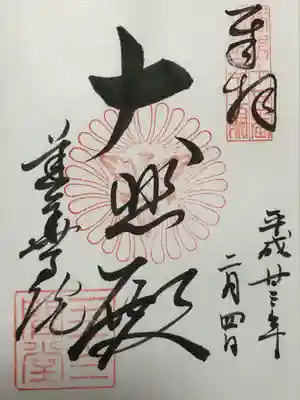 奉拝
大悲殿
蓮華王院
平成廿三年
二月四日